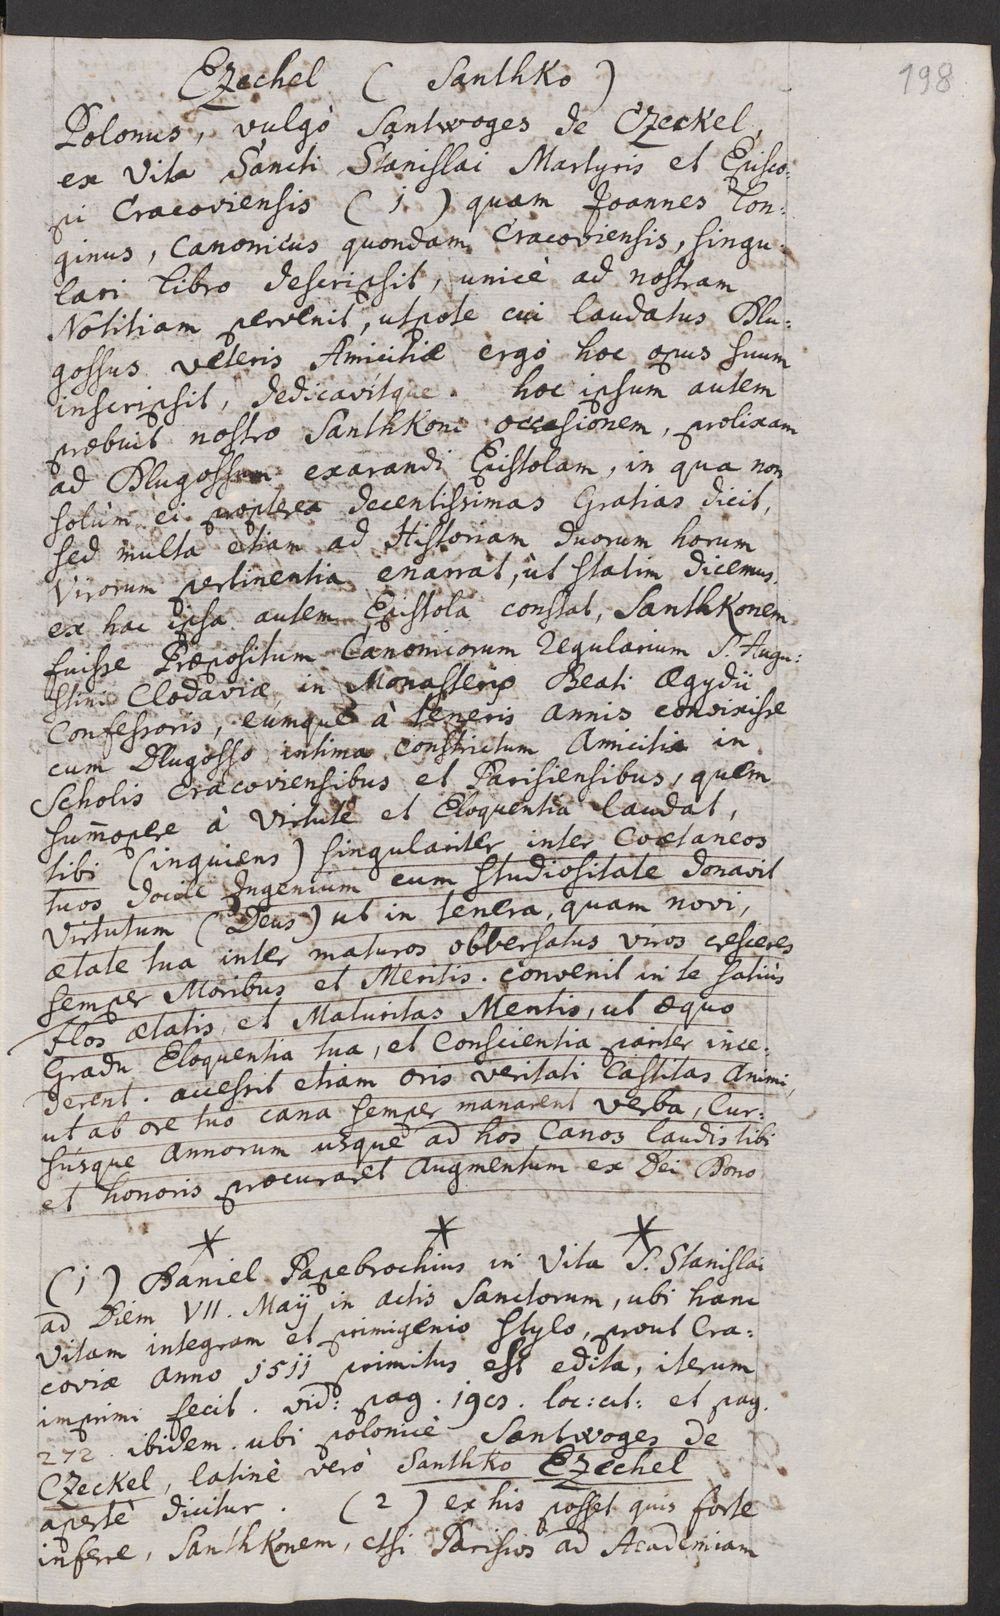 198
Ezechel ( Santhko )
Polonus, vulgò Santwoges de Czeckel,
ex Vita Sancti Stanislai Martyris et Episco:
pi Cracoviensis ( 1 ) quam Joannes Lon:
ginus, Canonicus quondam Cracoviensis, singu:
lari libro descripsit, unicè ad nostram
Notitiam pervenit, utpote cui laudatus Dlu:
gossus veteris Amicitiæ ergò hoc opus suum
inscripsit, dedicavitque. hoc ipsum autem
præbuit nostro Santhkoni occasionem, prolixam
ad Dlugossum exarandi Epistolam, in qua non
solùm ei propterea decentissimas Gratias dicit,
sed multa etiam ad Historiam duorum horum
Virorum pertinentia enarrat, ut statim dicemus.
ex hac ipsa autem Epistola constat, Santhkonem
fuisse Præpositum Canonicorum Regularium S. Augu:
stini Clodaviæ in Monasterio Beati Ægydii
Confessoris, eumque à teneris annis convixisse
cum Dlugosso intima constrictum Amicitia in
Scholis Cracoviensibus et Parisiensibus, quem
sum̄opere à Virtute et Eloquentia laudat,
tibi (inquiens) singulariter inter Coætaneos
tuos docile Ingenium cum studiositate donavit
Virtutum (Deus) ut in tenera, quam novi,
ætate tua inter maturos obversatus viros cresceres
semper Moribus et Meritis. convenit in te satius
flos ætatis, et Maturitas Mentis, ut æquo
Gradu Eloquentia tua, et Conscientia pariter ince:
derent. accessit etiam oris veritati Castitas Animi,
ut ab ore tuo cana semper manarent verba, Cur:
súsque Annorum usque ad hos Canos laudis tibi
et honoris procuraret Augmentum ex Dei Dono
* * *
(1) Daniel Papebrochius in Vita S. Stanislai
ad Diem VII. Maÿ in actis Sanctorum, ubi hanc
Vitam integram et primigenio stylo, prout Cra:
coviæ Anno 1511 primitus est edita, iterum
imprimi fecit. vid: pag. 198. loc: cit: et pag.
272. ibidem. ubi polonicè Santwoges de
Czeckel, latinè verò Santhko Ezechel
apertè dicitur. (2) ex his posset quis forte
inferre, Santhkonem, etsi Parisios ad Academiam